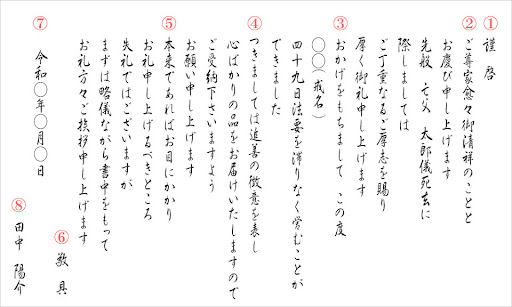 ①
謹 啓
②
ご尊家愈々御清祥のことと
お慶び申し上げます
先般 亡父 太郎儀死去に
際しましては
ご丁重なるご厚志を賜り
厚く御礼申し上げます
③
おかげをもちまして この度
〇〇(戒名)
四十九日法要を滞りなく営むことが
できました
④
つきましては追善の微意を表し
心ばかりの品をお届けいたしますので
ご受納下さいますよう
お願い申し上げます
⑤
本来であればお目にかかり
お礼申し上げるべきところ
失礼ではございますが
まずは略儀ながら書中をもって
お礼方々ご挨拶申し上げます
⑥
敬 具
⑦
令和〇年〇月〇日
⑧
田中 陽介